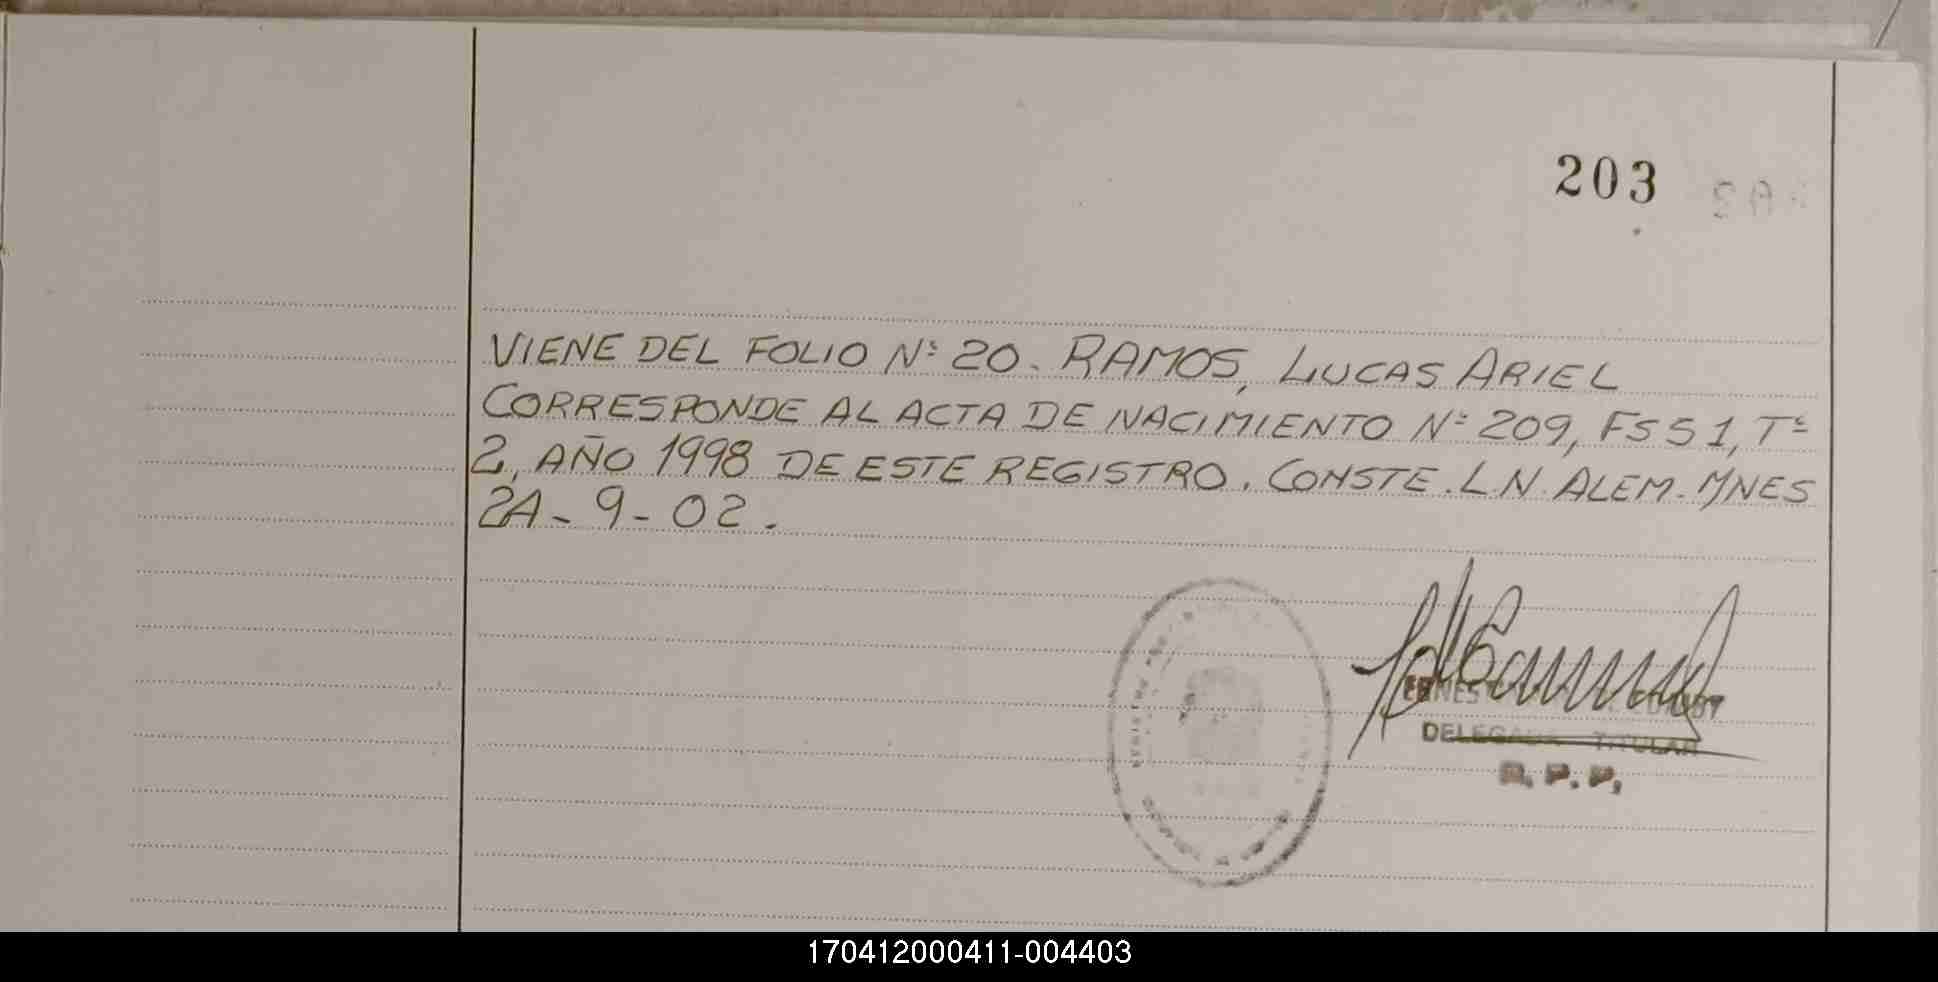 203
VIENE DEL FOLIO Nº 20. RAMOS, LUCAS ARIEL
CORRESPONDE AL ACTA DE NACIMIENTO Nº 209, FS 51, Tº
2, AÑO 1998 DE ESTE REGISTRO. CONSTE. L.N. ALEM. MNES
24-9-02.
DELEGADA TITULAR
R. P. P.
170412000411-004403